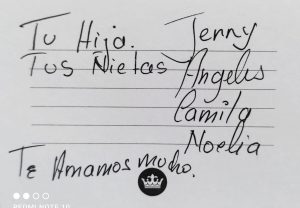 Tu Hija. Jenny
Tus Nietas Angeles
Camila
Noelia
Te Amamos mucho.
REDMI NOTE 10